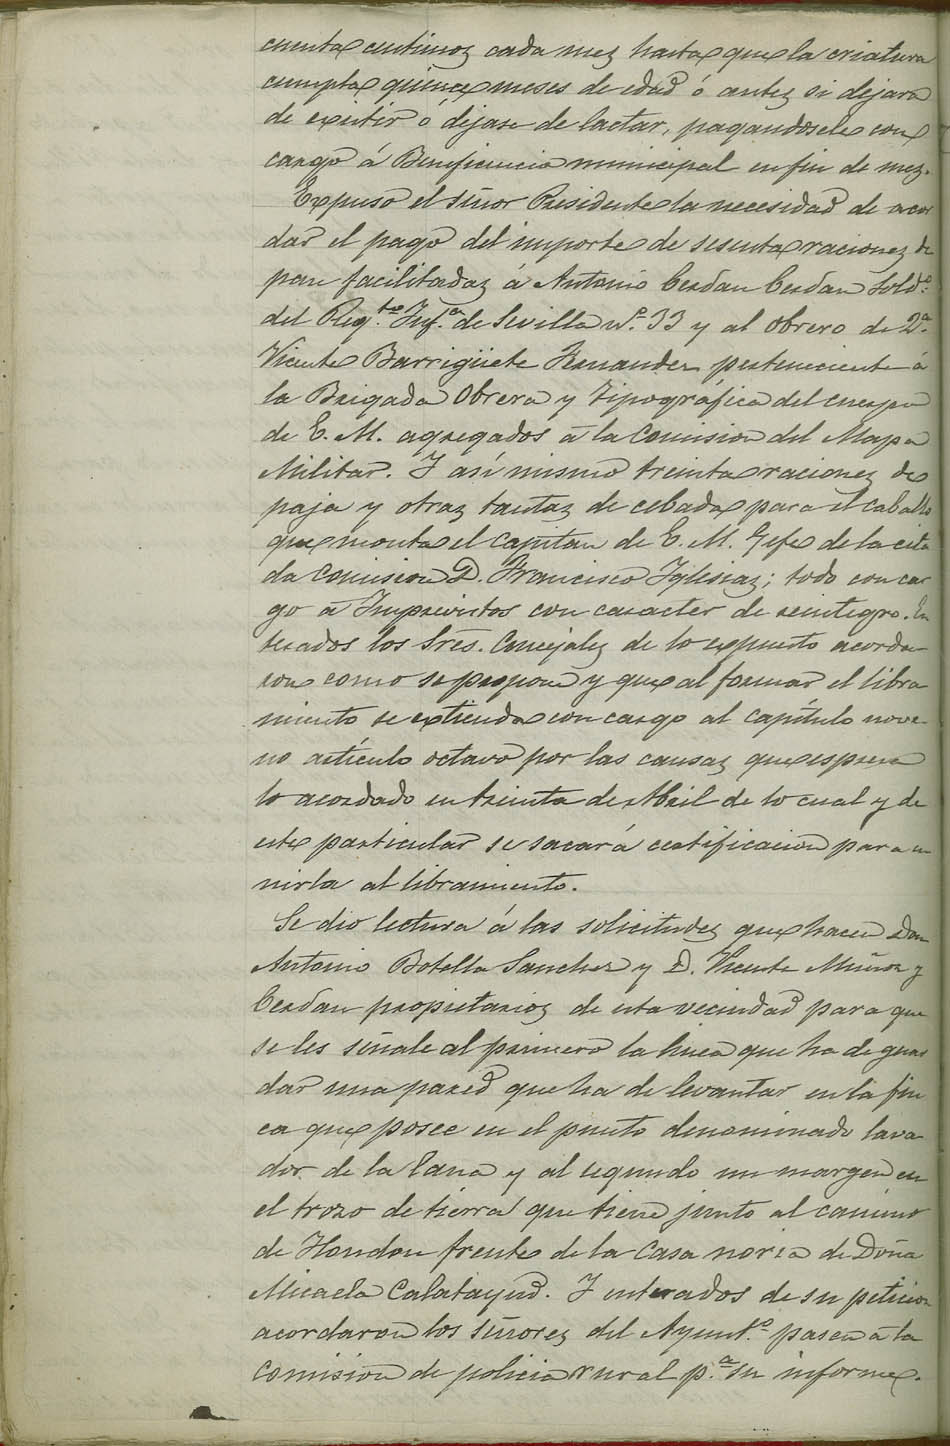 cuenta centimos cada mes hasta que la criatura
cumpla quince meses de edad ó antes si dejara
de existir ó dejase de lactar, pagandosele con
cargo á Beneficencia municipal en fin de mes.
Expuso el señor Presidente la necesidad de acor
dar el pago del importe de sesenta raciones de
pan facilitadas á Antonio Cerdan Cerdan Sold.º
del Reg.to Inf.a de Sevilla nº. 33 y al obrero de 2.a
Vicente Barrigüete Fernandez perteneciente á
la Brigada Obrera y Tipográfica del cuerpo
de E. M. agregados á la Comision del Mapa
Militar. Y así mismo treinta raciones de
paja y otras tantas de cebada para el caballo
que monta el Capitan de E. M. Gefe de la cita
da Comision D. Francisco Yglesias; todo con car
go á Imprevistos con caracter de reintegro. En
terados los Sres. Concejales de lo expuesto acorda
ron como se propone y que al formar el libra
miento se extienda con cargo al capítulo nove
no artículo octavo por las causas que espresa
lo acordado en treinta de Abril de lo cual y de
este particular se sacará certificacion para u
nirla al libramiento.
Se dio lectura á las solicitudes que hacen Don
Antonio Botella Sanchez y D. Vicente Muñoz y
Cerdan propietarios de esta vecindad para que
se les señale al primero la linea que ha de guar
dar una pared que ha de levantar en la fin
ca que posee en el punto denominado lava
dor de la lana y al segundo un margen en
el trozo de tierra que tiene junto al camino
de Hondon frente de la Casa noria de Doña
Micaela Calatayud. Y enterados de su peticion
acordaron los señores del Ayunt.º pasen á la
Comision de policia rural p.a su informe.